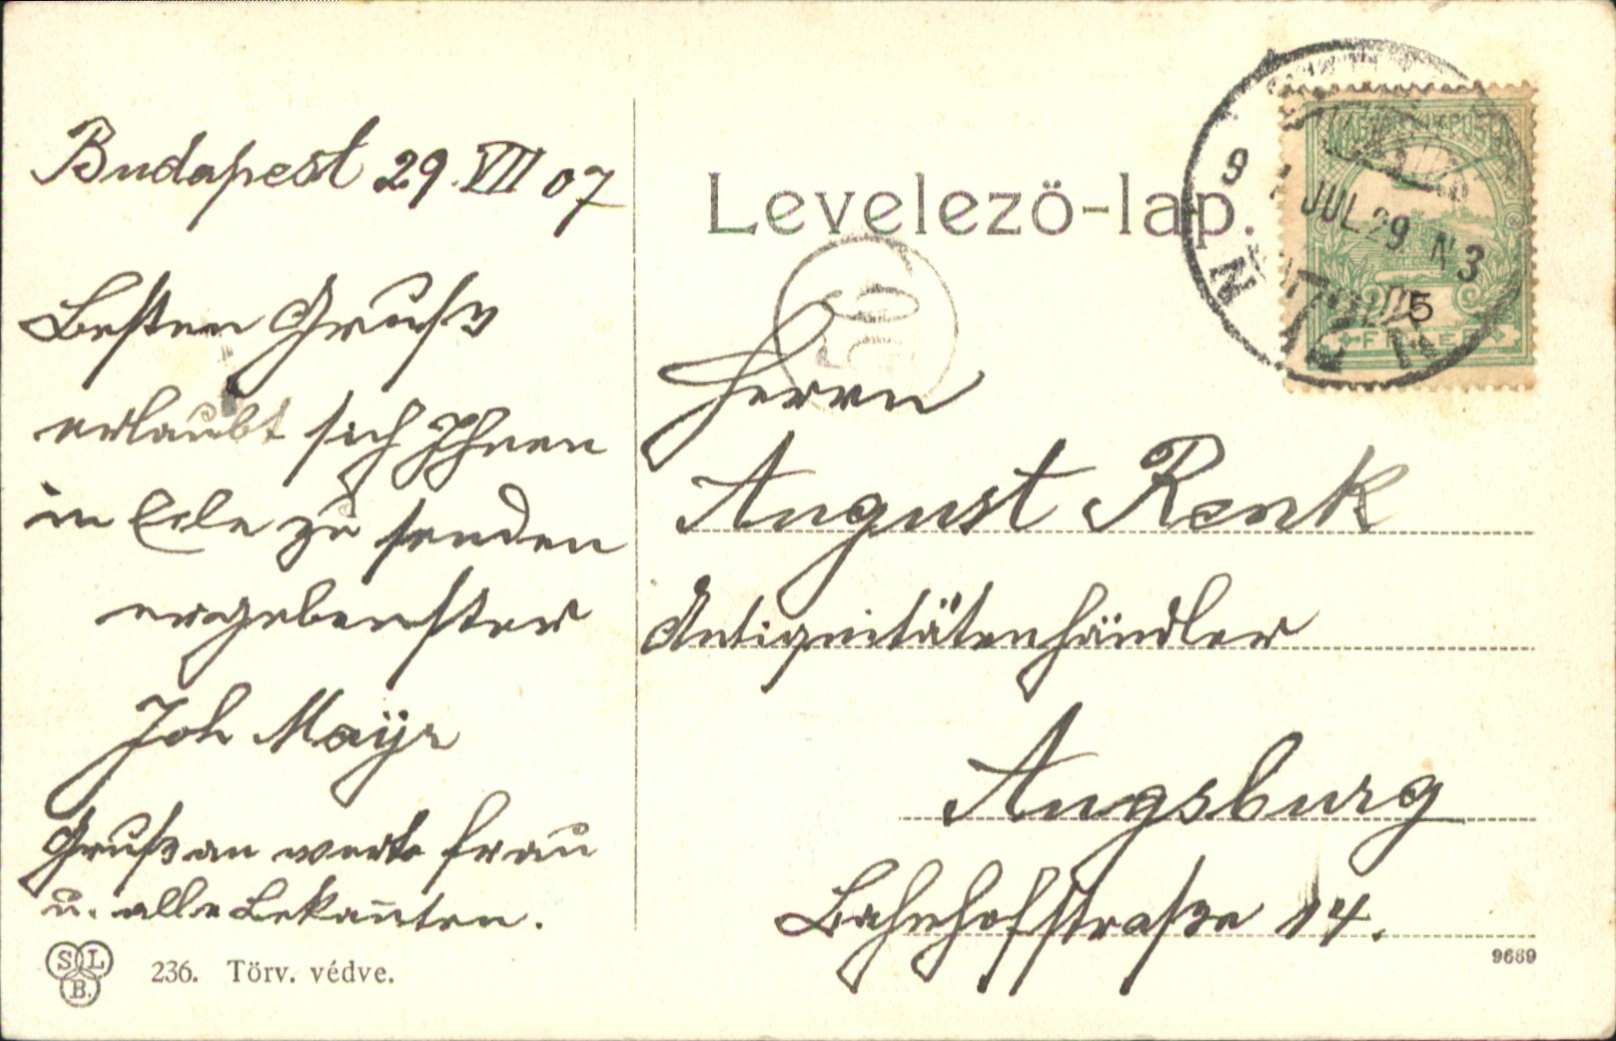 Budapest 29. VII 07
Besten Gruß
erlaubt sich Ihnen
in Eile zu senden
ergebenster
Joh Mayr
Gruß an werte Frau
u. alle Bekannten.
S L B.
236. Törv. védve.
Levelező-lap.
9 JUL 29 N 3
5
FILLÉR
Herrn
August Renk
Antiquitätenhändler
Augsburg
Bahnhofstraße 14.
9689